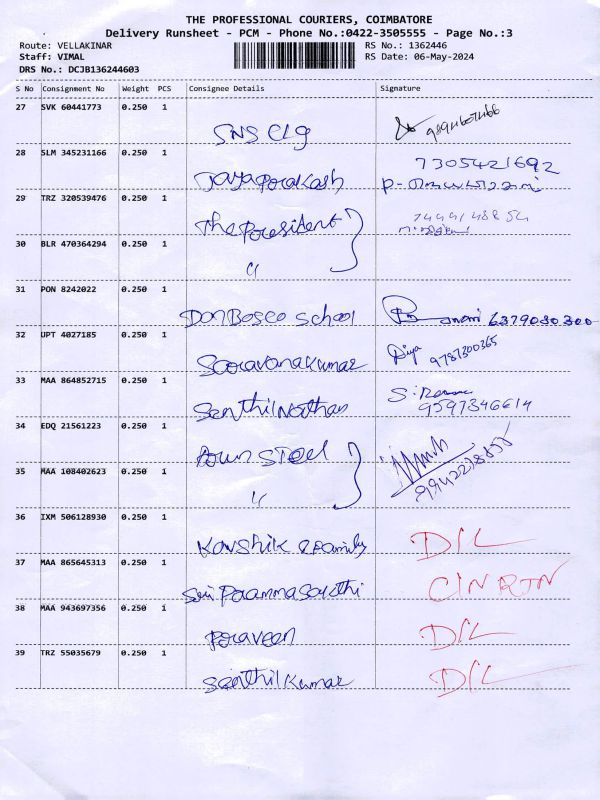 THE PROFESSIONAL COURIERS, COIMBATORE
Delivery Runsheet - PCM - Phone No.:0422-3505555 - Page No.:3
Route: VELLAKINAR RS No.: 1362446
Staff: VIMAL RS Date: 06-May-2024
DRS No.: DCJB136244603
S No Consignment No Weight PCS Consignee Details Signature
27 SVK 60441773 0.250 1
SNS Clg
28 SLM 345231166 0.250 1 7305421692
Jayaporakash
29 TRZ 320539476 0.250 1
The President
30 BLR 470364294 0.250 1
"
31 PON 8242022 0.250 1
Don Bosco School 6379030300
32 UPT 4027185 0.250 1 Diya 9787300365
Saravanakumar
33 MAA 864852715 0.250 1
Senthil Nathan 9597346614
34 EDQ 21561223 0.250 1
Arun STeel
35 MAA 108402623 0.250 1
"
36 IXM 506128930 0.250 1
Kowshik & Family D/L
37 MAA 865645313 0.250 1
Sri C/N RTN
38 MAA 943697356 0.250 1
Poraveen D/L
39 TRZ 55035679 0.250 1
Senthil Kumar D/L